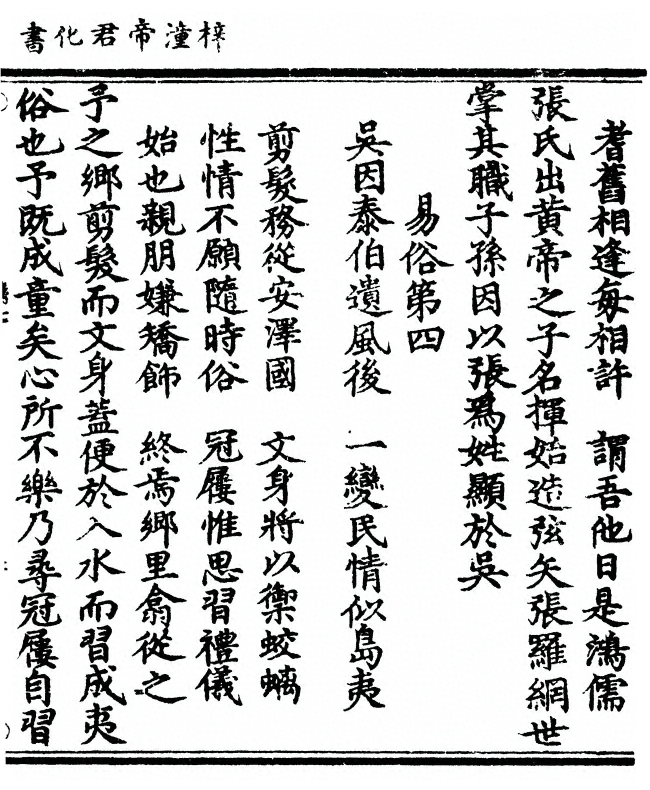 梓潼帝君化書
耆舊相逢每相許　謂吾他日是鴻儒
張氏出黃帝之子名揮始造弦矢張羅網世
掌其職子孫因以張爲姓顯於吳
易俗第四
吳因泰伯遺風後　一變民情似島夷
剪髮務從安澤國　文身將以禦蛟螭
性情不願隨時俗　冠屨惟思習禮儀
始也親朋嫌矯飾　終焉鄉里翕從之
予之鄉剪髮而文身蓋便於入水而習成夷
俗也予既成童矣心所不樂乃尋冠屨自習